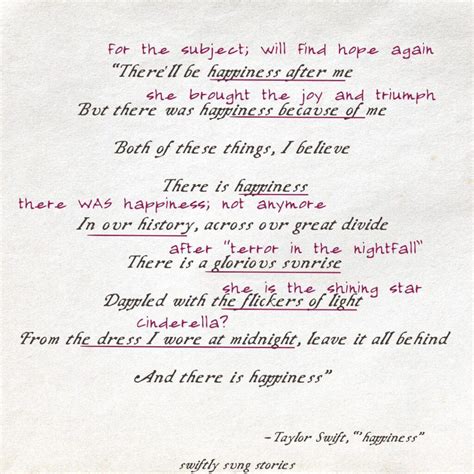 for the subject; will find hope again
“There'll be happiness after me
she brought the joy and triumph
But there was happiness because of me
Both of these things, I believe
There is happiness
there WAS happiness; not anymore
In our history, across our great divide
after "terror in the nightfall"
There is a glorious sunrise
she is the shining star
Dappled with the flickers of light
cinderella?
From the dress I wore at midnight, leave it all behind
And there is happiness”
-Taylor Swift, “'happiness”
swiftly sung stories